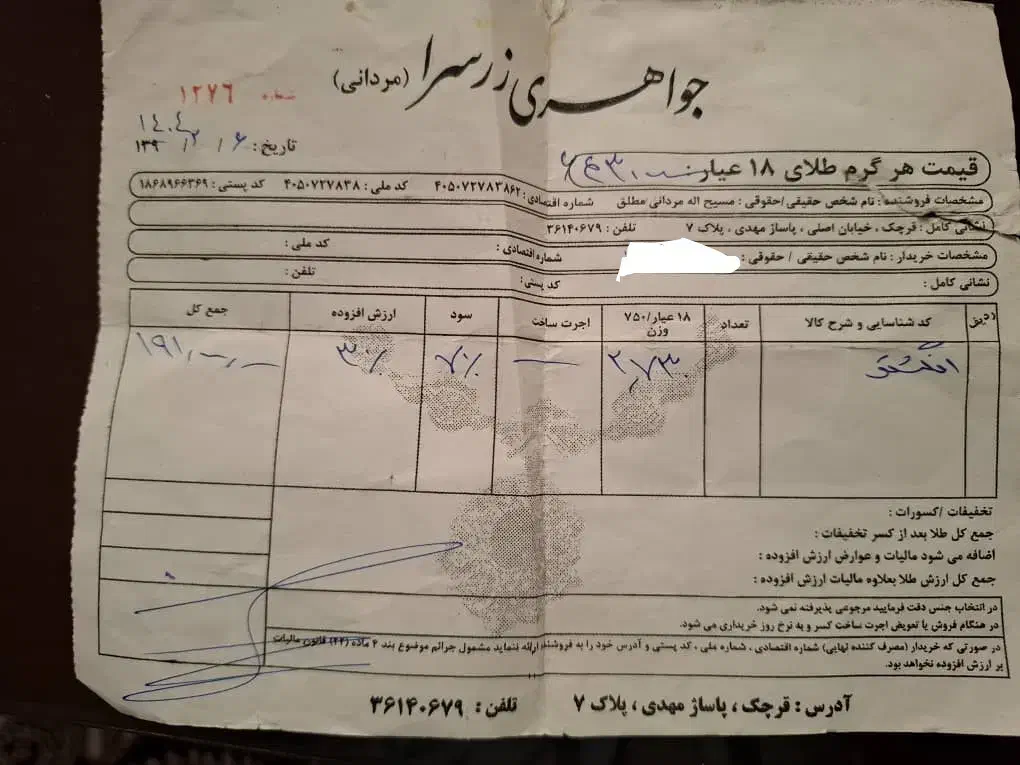 جواهری زرسرا (مردانی)
شماره ۱۲۷۶
۱۴۰۴
تاریخ: ۶ / ۲ / ۱۳۹
قیمت هر گرم طلای ۱۸ عیار
مشخصات فروشنده: نام شخص حقیقی/حقوقی: مسیح اله مردانی مطلق شماره اقتصادی: ۴۰۵۰۷۲۷۸۳۸۶۲ کد ملی: ۴۰۵۰۷۲۷۸۳۸ کد پستی: ۱۸۶۸۹۶۶۳۶۹
نشانی کامل: قرچک، خیابان اصلی، پاساژ مهدی، پلاک ۷ تلفن: ۳۶۱۴۰۶۷۹
مشخصات خریدار: نام شخص حقیقی / حقوقی: شماره اقتصادی: کد ملی:
نشانی کامل: کد پستی: تلفن:
ردیف کد شناسایی و شرح کالا تعداد ۱۸ عیار/۷۵۰ وزن اجرت ساخت سود ارزش افزوده جمع کل
انگشتر ۲٫۷۳۰ — ۷٪ ۳٪ ۱۹۱٬۰۰۰٬۰۰۰
تخفیفات /کسورات:
جمع کل طلا بعد از کسر تخفیفات:
اضافه می شود مالیات و عوارض ارزش افزوده:
جمع کل ارزش طلا بعلاوه مالیات ارزش افزوده:
در انتخاب جنس دقت فرمایید مرجوعی پذیرفته نمی شود.
در هنگام فروش یا تعویض اجرت ساخت کسر و به نرخ روز خریداری می شود.
در صورتی که خریدار (مصرف کننده نهایی) شماره اقتصادی، شماره ملی، کد پستی و آدرس خود را به فروشنده ارائه ننماید مشمول جرائم موضوع بند ۴ ماده (۴۴) قانون مالیات
بر ارزش افزوده نخواهد بود.
آدرس: قرچک، پاساژ مهدی، پلاک ۷ تلفن: ۳۶۱۴۰۶۷۹